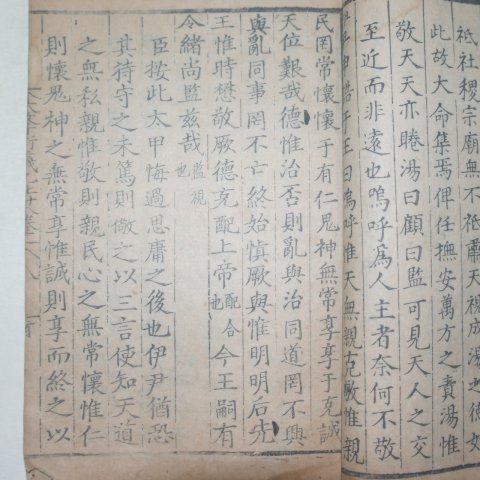 祗社稷宗廟無不祗肅天視成湯之德如
此故大命集焉俾任撫安萬方之責湯惟
敬天天亦睠湯曰顧曰監可見天人之交
至近而非遠也嗚呼為人主者奈何不敬
誥于王曰嗚呼惟天無親克敬惟親
民罔常懷懷于有仁鬼神無常享享于克誠
天位艱哉德惟治否則亂與治同道罔不興
與亂同事罔不亡終始慎厥與惟明明后先
王惟時懋敬厥德克配上帝配合也今王嗣有
令緒尚監茲哉監視也
臣按此太甲悔過思庸之後也伊尹猶恐
其持守之未篤則儆之以三言使知天道
之無私親惟敬則親民心之無常懷惟仁
則懷鬼神之無常享惟誠則享而終之以